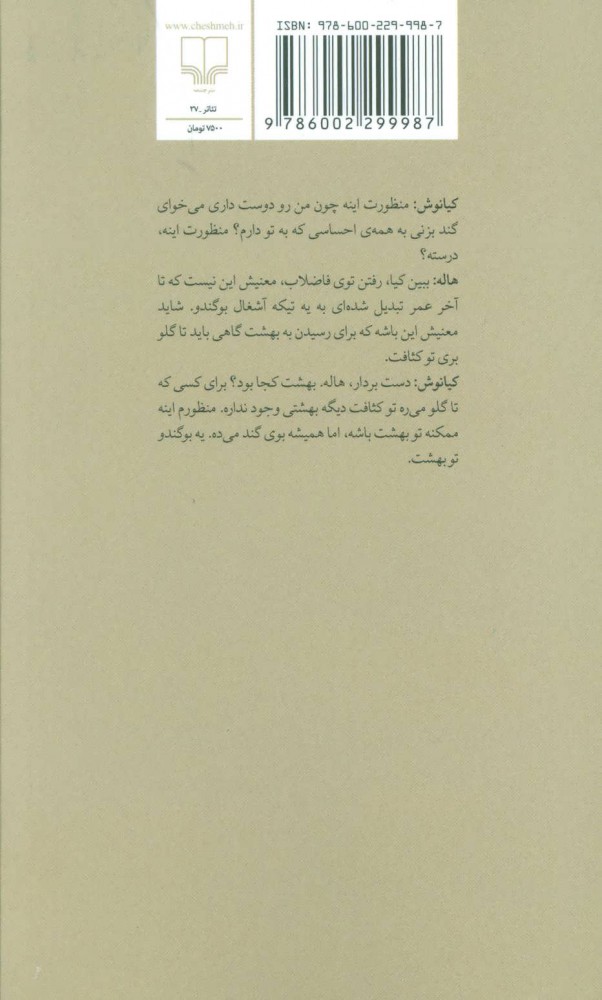 www.cheshmeh.ir
نشر چشمه
تئاتر ـ ۲۷
۷۵۰۰ تومان
ISBN: 978-600-229-998-7
9 786002 299987
کیانوش: منظورت اینه چون من رو دوست داری می‌خوای
گند بزنی به همه‌ی احساسی که به تو دارم؟ منظورت اینه،
درسته؟
هاله: ببین کیا، رفتن توی فاضلاب، معنیش این نیست که تا
آخر عمر تبدیل شده‌ای به یه تیکه آشغال بوگندو. شاید
معنیش این باشه که برای رسیدن به بهشت گاهی باید تا گلو
بری تو کثافت.
کیانوش: دست بردار، هاله. بهشت کجا بود؟ برای کسی که
تا گلو می‌ره تو کثافت دیگه بهشتی وجود نداره. منظورم اینه
ممکنه تو بهشت باشه، اما همیشه بوی گند می‌ده. یه بوگندو
تو بهشت.